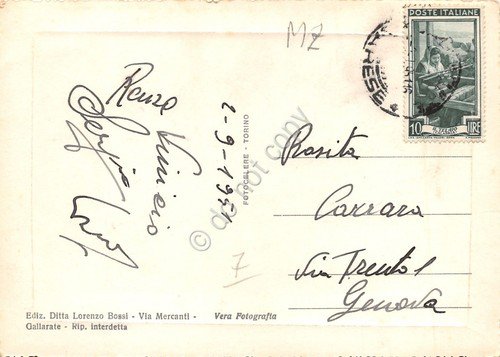 MZ
POSTE ITALIANE
10 LIRE
Renza Vinicio
Sergio
2-9-1951
FOTOCELERE - TORINO
Rosita
Carrara
Via Trento 1
Genova
7
Ediz. Ditta Lorenzo Bossi - Via Mercanti -
Gallarate - Rip. interdetta
Vera Fotografia
do not copy